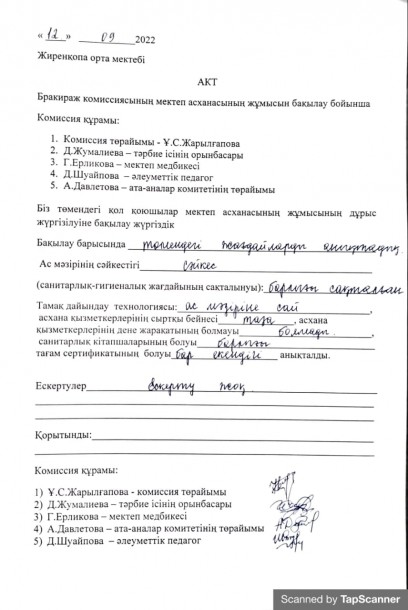 « 12 » 09 2022
Жиренқопа орта мектебі
АКТ
Бракираж комиссиясының мектеп асханасының жұмысын бақылау бойынша
Комиссия құрамы:
1. Комиссия төрайымы - Ұ.С.Жарылғапова
2. Д.Жумалиева – тәрбие ісінің орынбасары
3. Г.Ерликова – мектеп медбикесі
4. Д.Шуайпова – әлеуметтік педагог
5. А.Давлетова – ата-аналар комитетінің төрайымы
Біз төмендегі қол қоюшылар мектеп асханасының жұмысының дұрыс
жүргізілуіне бақылау жүргіздік
Бақылау барысында төмендегі жағдайларды анықтадық
Ас мәзірінің сәйкестігі сәйкес
(санитарлық-гигиеналық жағдайының сақталынуы): барлығы сақталған
Тамақ дайындау технологиясы: ас мәзіріне сай,
асхана қызметкерлерінің сыртқы бейнесі таза, асхана
қызметкерлерінің дене жарақатының болмауы болмады.
санитарлық кітапшаларының болуы барлығы
тағам сертификатының болуы бар екендігі анықталды.
Ескертулер Ескерту жоқ
Қорытынды:
Комиссия құрамы:
1) Ұ.С.Жарылғапова - комиссия төрайымы
2) Д.Жумалиева – тәрбие ісінің орынбасары
3) Г.Ерликова – мектеп медбикесі
4) А.Давлетова – ата-аналар комитетінің төрайымы
5) Д.Шуайпова – әлеуметтік педагог
Scanned by TapScanner